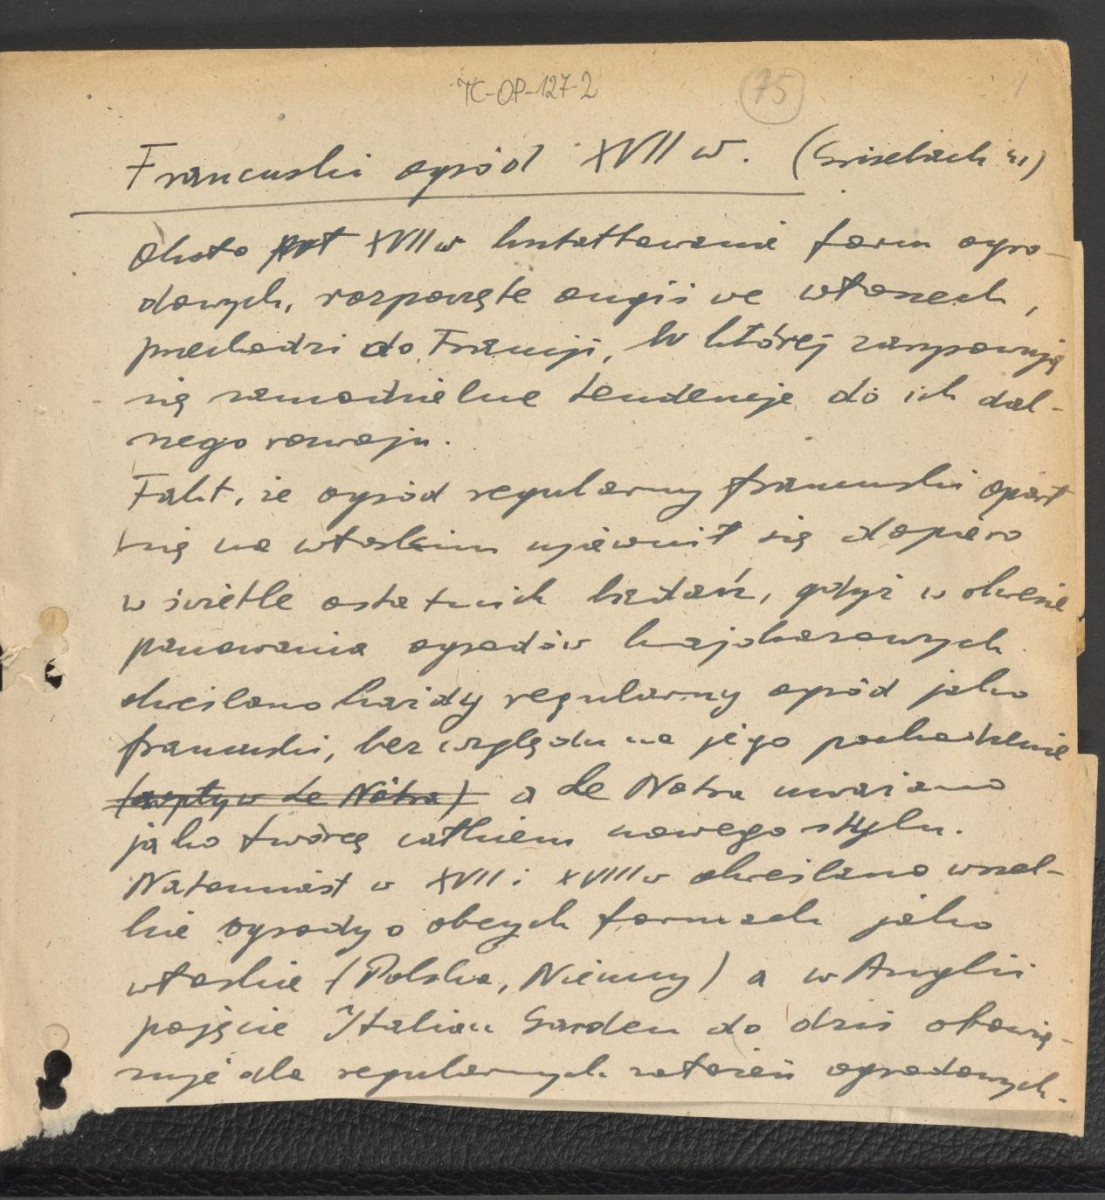 TC-OP-127-2 75 1
Francuski ogród XVII w. (Grisebach 41)
Około XVII w kształtowanie form ogro-
dowych, rozpoczęte ongiś we włoszech,
przechodzi do Francji, w której zarysowują
się samodzielne tendencje do ich dal-
szego rozwoju.
Fakt, że ogród regularny francuski oparł
się na włoskim ujawnił się dopiero
w świetle ostatnich badań, gdyż w okresie
panowania ogrodów krajobrazowych
określano każdy regularny ogród jako
francuski, bez względu na jego pochodzenie
(wpływ Le Nôtra) a Le Notra uważano
jako twórcę całkiem nowego stylu.
Natomiast w XVII i XVIII w określano wszel-
kie ogrody o obcych formach jako
włoskie (Polska, Niemcy) a w Anglii
pojęcie Italian Garden do dziś obowią-
zuje dla regularnych założeń ogrodowych.